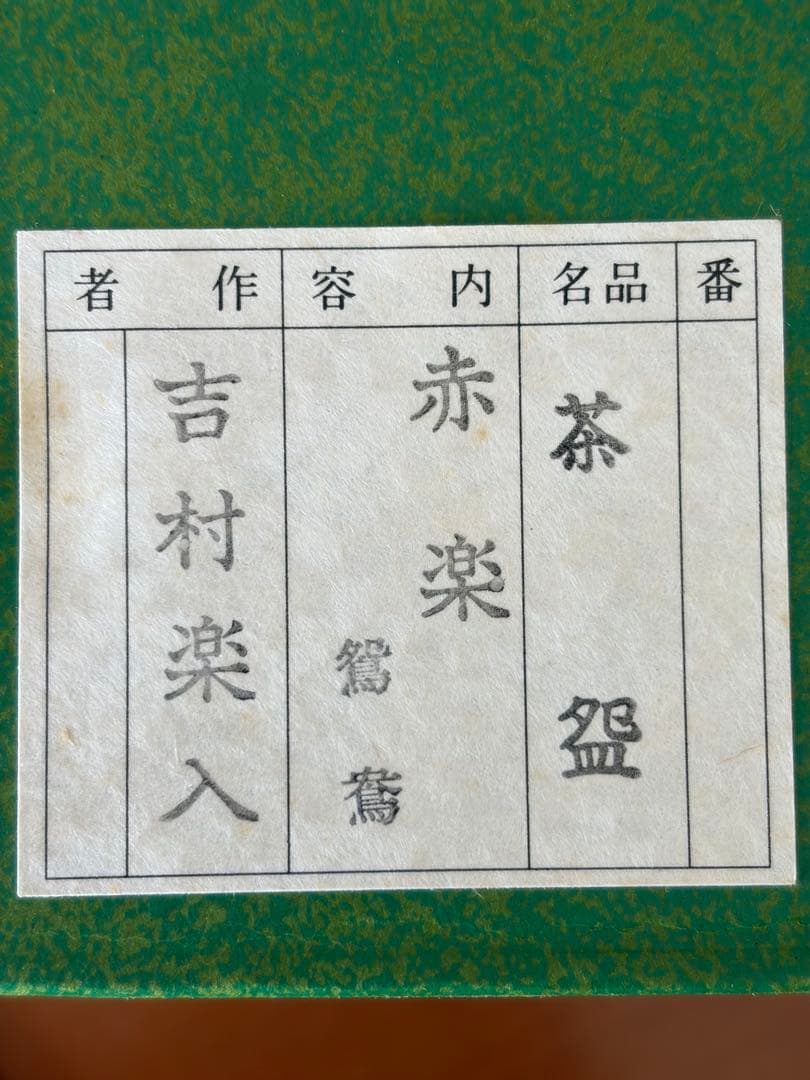 番
品名
茶盌
内容
赤楽
鴛鴦
作者
吉村楽入